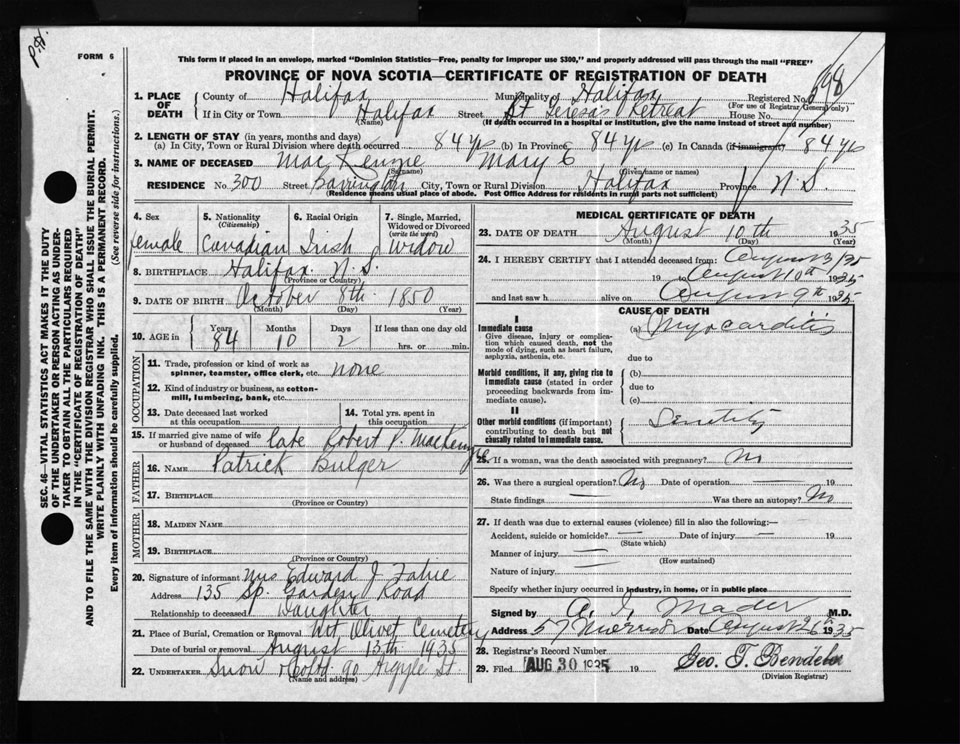 P.H.
FORM 6
This form if placed in an envelope, marked "Dominion Statistics—Free, penalty for improper use $300," and properly addressed will pass through the mail "FREE"
PROVINCE OF NOVA SCOTIA—CERTIFICATE OF REGISTRATION OF DEATH
1. PLACE OF DEATH
County of Halifax Municipality of Halifax Registered No. 898
(For use of Registrar General only)
If in City or Town Halifax Street St Teresa's Retreat House No.
(Name) (If death occurred in a hospital or institution, give the name instead of street and number)
2. LENGTH OF STAY (in years, months and days)
(a) In City, Town or Rural Division where death occurred 84 yrs (b) In Province 84 yrs (c) In Canada (if immigrant) 84 yrs
3. NAME OF DECEASED MacKenzie Mary C
(Surname) (Given name or names)
RESIDENCE No. 300 Street Barrington City, Town or Rural Division Halifax Province N.S.
(Residence means usual place of abode. Post Office Address for residents in rural parts not sufficient)
4. Sex female
5. Nationality (Citizenship) Canadian
6. Racial Origin Irish
7. Single, Married, Widowed or Divorced (write the word) Widow
8. BIRTHPLACE Halifax N.S.
(Province or Country)
9. DATE OF BIRTH October 8th 1850
(Month) (Day) (Year)
10. AGE in Years Months Days If less than one day old
84 10 2 hrs. or min.
OCCUPATION
11. Trade, profession or kind of work as spinner, teamster, office clerk, etc. none
12. Kind of industry or business, as cotton-mill, lumbering, bank, etc.
13. Date deceased last worked at this occupation
14. Total yrs. spent in this occupation
15. If married give name of wife or husband of deceased late Robert P. MacKenzie
FATHER
16. NAME Patrick Bulger
17. BIRTHPLACE
(Province or Country)
MOTHER
18. MAIDEN NAME
19. BIRTHPLACE
(Province or Country)
20. Signature of informant Mrs Edward J Fahie
Address 135 Sp. Garden Road
Relationship to deceased Daughter
21. Place of Burial, Cremation or Removal Mt Olivet Cemetery
Date of burial or removal August 13th 1935
22. UNDERTAKER Snow & Co Ltd 90 Argyle St.
(Name and address)
MEDICAL CERTIFICATE OF DEATH
23. DATE OF DEATH August 10th 1935
(Month) (Day) (Year)
24. I HEREBY CERTIFY that I attended deceased from: August 3/35
19 to August 10th 1935
and last saw h alive on August 9th 1935
CAUSE OF DEATH
I
Immediate cause
Give disease, injury or complication which caused death, not the mode of dying, such as heart failure, asphyxia, asthenia, etc.
(a) Myocarditis
due to
Morbid conditions, if any, giving rise to immediate cause (stated in order proceeding backwards from immediate cause).
(b)
due to
(c)
II
Other morbid conditions (if important) contributing to death but not causally related to immediate cause.
Senility
25. If a woman, was the death associated with pregnancy? No
26. Was there a surgical operation? No Date of operation — 19
State findings — Was there an autopsy? No
27. If death was due to external causes (violence) fill in also the following:—
Accident, suicide or homicide? — Date of injury — 19
(State which)
Manner of injury —
(How sustained)
Nature of injury —
Specify whether injury occurred in industry, in home, or in public place
Signed by A. I. Mader M.D.
Address 57 Morris St Date August 26th 1935
28. Registrar's Record Number
29. Filed AUG 30 1935 19 Geo. T. Bendeln
(Division Registrar)
SEC. 46—VITAL STATISTICS ACT MAKES IT THE DUTY OF THE UNDERTAKER OR PERSON ACTING AS UNDERTAKER TO OBTAIN ALL THE PARTICULARS REQUIRED IN THE "CERTIFICATE OF REGISTRATION OF DEATH" AND TO FILE THE SAME WITH THE DIVISION REGISTRAR WHO SHALL ISSUE THE BURIAL PERMIT.
WRITE PLAINLY WITH UNFADING INK. THIS IS A PERMANENT RECORD.
Every item of information should be carefully supplied. (See reverse side for instructions.)